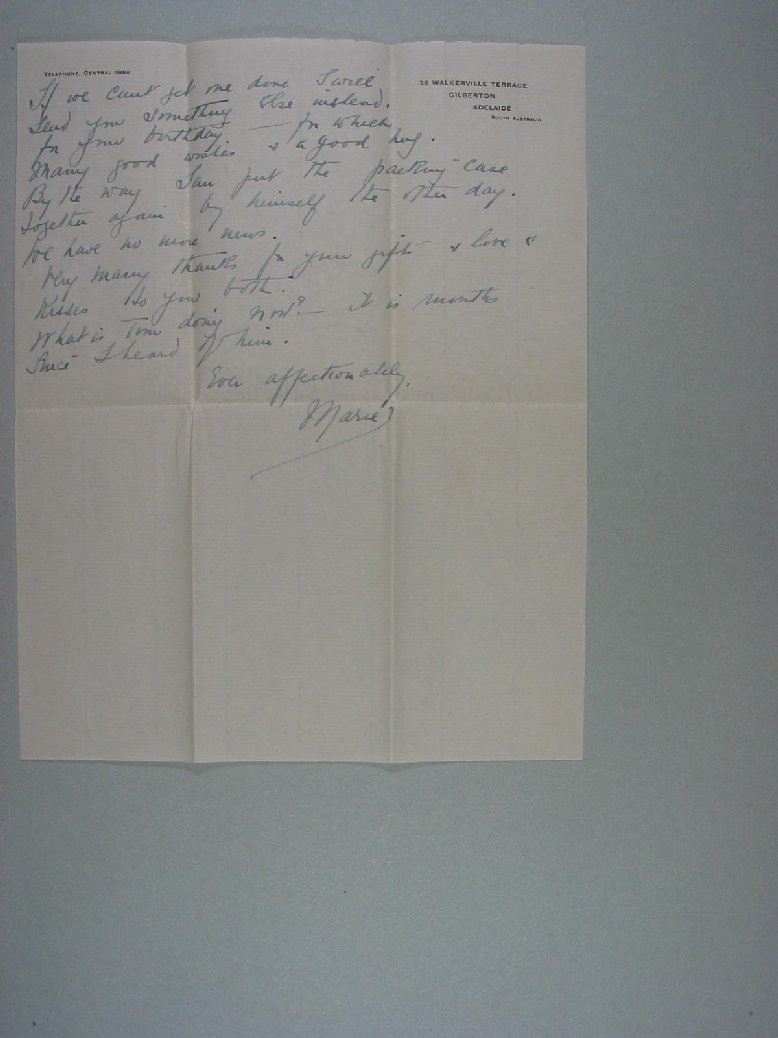 TELEPHONE, CENTRAL
36 WALKERVILLE TERRACE
GILBERTON
ADELAIDE
SOUTH AUSTRALIA
If we can't get one done I will
send you something else instead.
for your birthday — for which
Many good wishes & a good hug.
By the way Ian put the packing case
together again by himself the other day.
We have no more news.
Very many thanks for your gifts & love &
Kisses to you both.
What is Tom doing now? — it is months
since I heard of him.
Ever affectionately,
Marie